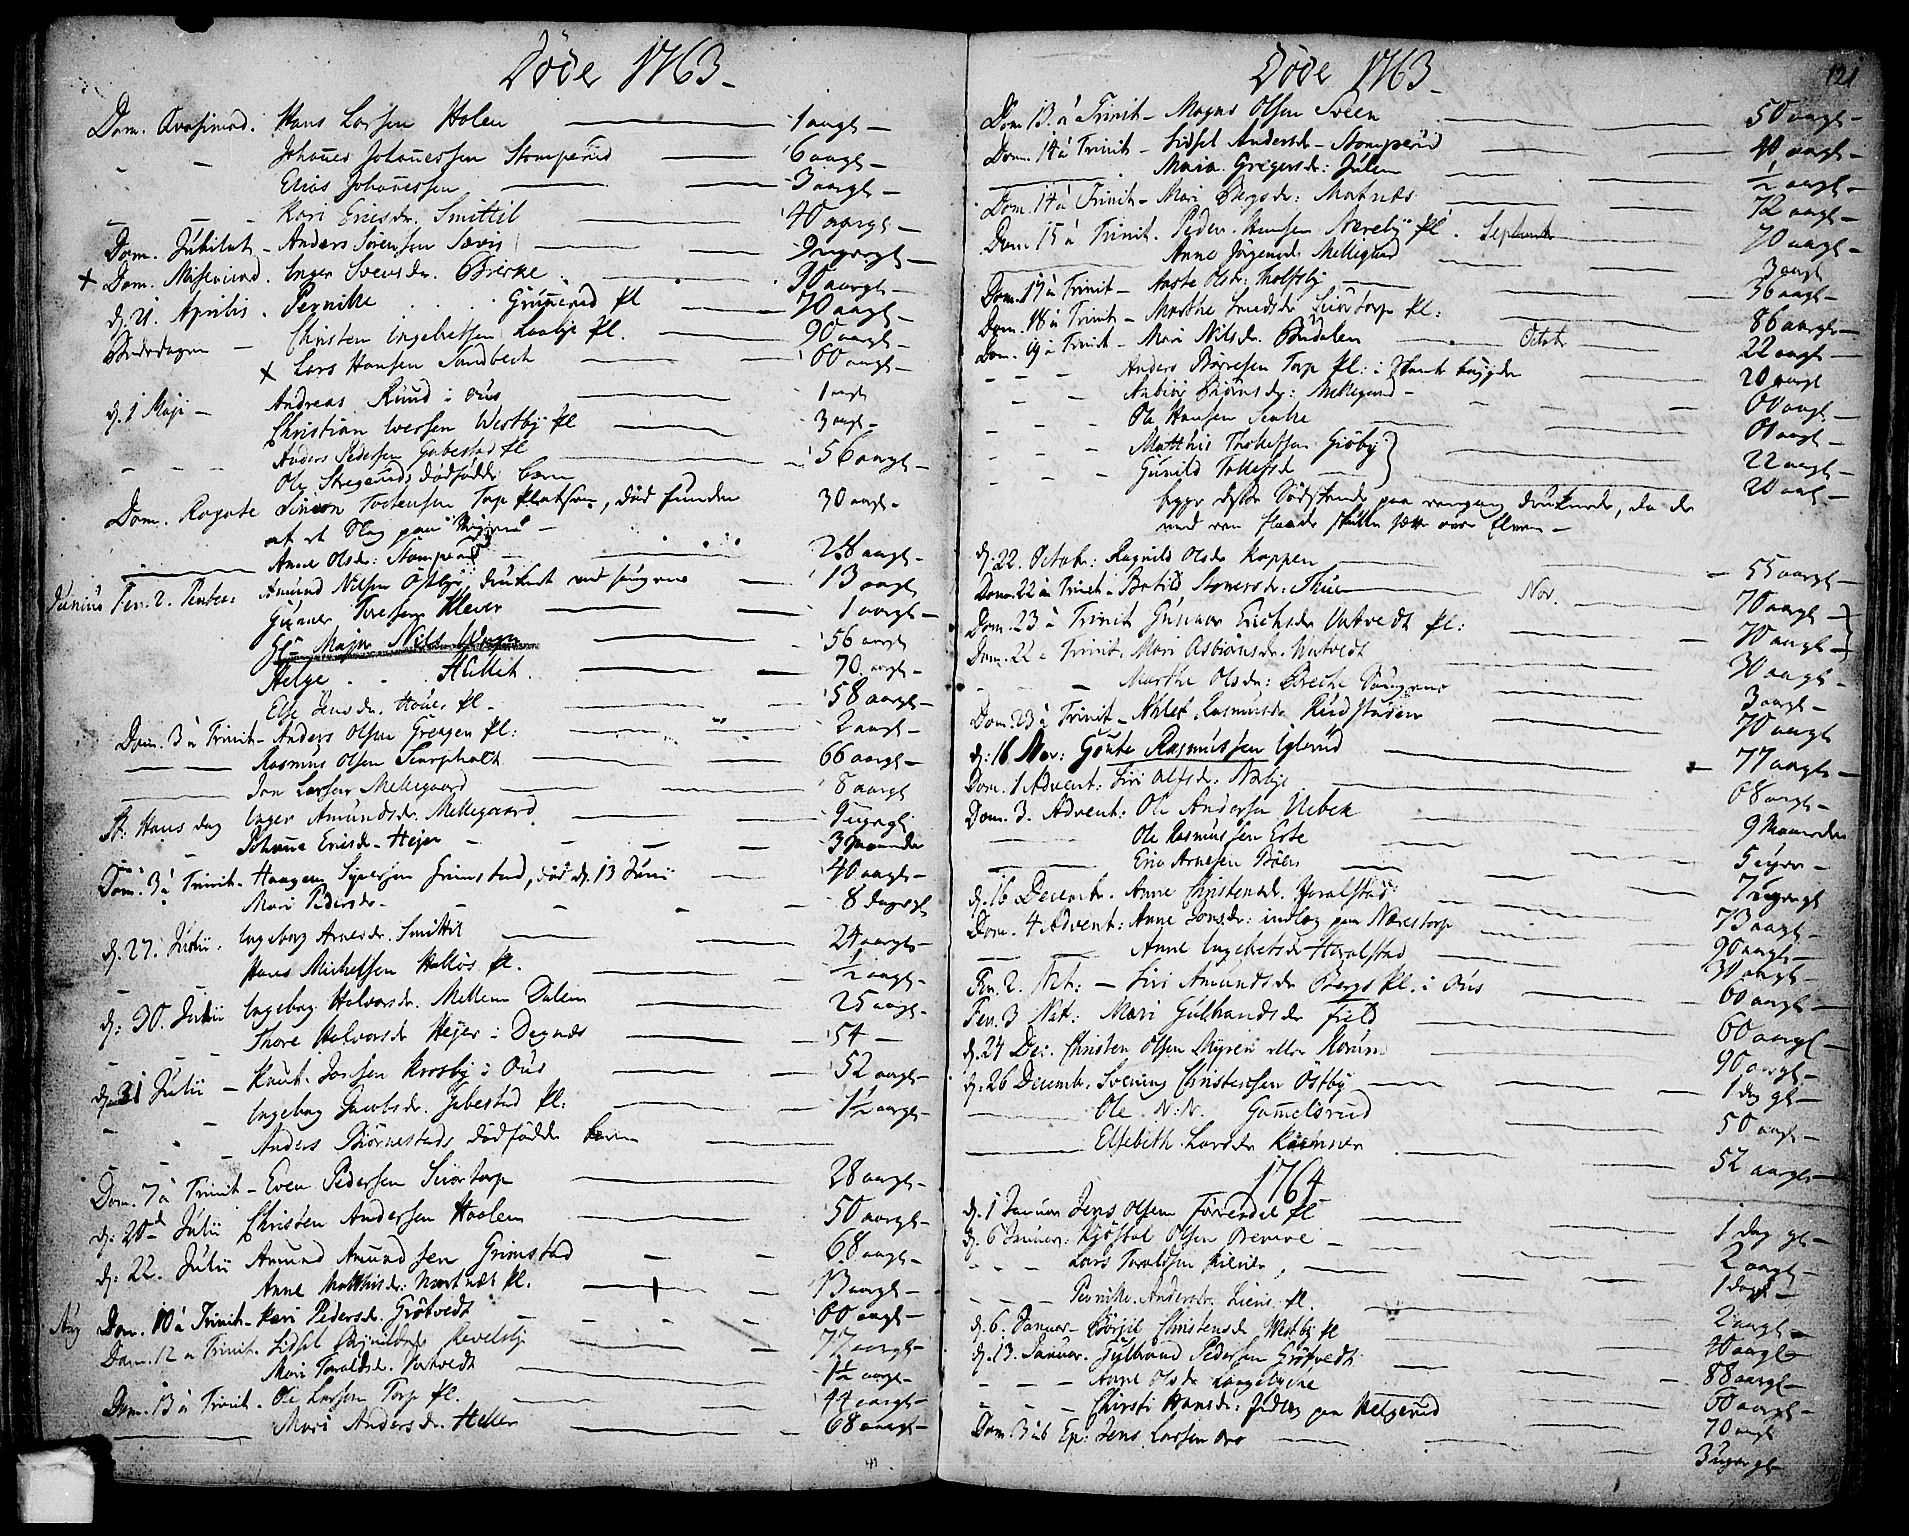 Døde 1763
Dom. Qvasimod. Hans Larsen Holen 1 aargl
Johannes Johannessen Stomperud 6 aargl
Elias Johannessen 3 aargl
Kari Ericsdr. Smittil 40 aargl
Dom. Jubilat. Anders Sørensen 9 ugergl
+ Dom. Misericord. Inger Svensdr. Bierke 30 aargl
d. 21. Aprilis. Pernille Grimsrud Pl 70 aargl
Bededagen Christen Ingebretsen Laabye Pl. 90 aargl
+ Lars Hansen Sandbech 60 aargl
d. 1 Maji Andreas Ruud i Øus 1 aargl
Christian Iversen Westby Pl 3 aargl
Anders Pedersen Gabestad Pl 56 aargl
Ole Stregeruds dødfødde barn
Dom. Rogate Simon Tostensen Torp Pladsen, død funden 30 aargl
af et Slag paa
Anne Olsdr. Stomperud 28 aargl
Junius Fer. 2. Pentec: Amund Nilsen Østbye, druknet ved 13 aargl
Gunner Torresen Klever 1 aargl
Hr Major Nils 56 aargl
Helge Hellet 70 aargl
Else Jensdr. Houer Pl 58 aargl
Dom. 3 à Trinit Anders Olsen Grengen Pl: 2 aargl
Rasmus Olsen Skarpholt 66 aargl
Jon Larsen Mellegaard 8 aargl
St. Hans dag Inger Amundsdr. Mellegaard 9 ugergl
Johanne Ericsdr. Hejer 3 maaneder
Dom. 3 à Trinit. Haagen Syversen Grimstad, død d. 13 Junii 40 aargl
Mari Pedersdr. 8 dagegl
d. 27. Julii. Ingeborg Arnesdr. Smittil 24 aargl
Hans Michelsen Holløs Pl. ½ aargl
d: 30. Julii Ingeborg Halvorsdr. Mellem Dalen 25 aargl
Thore Halvorsdr Hejer i Degnes 54
d. 31 Julii Knut Jonsen Krosby i Øus 52 aargl
Ingeborg Jacobsdr. Gabestad Pl: 1½ aargl
Anders Biørnestads dødfødde barn
Dom. 7 à Trinit Even Pedersen Siortorp 28 aargl
d: 20d Julii Christen Andersen Haalem 50 aargl
d: 22. Julii Amund Amundsen Grimstad 68 aargl
Anne Matthisdr: Martnes Pl. 13 aargl
Aug Dom. 10 à Trinit Kari Pedersdr. Grøtvedt 60 aargl
Dom. 12 à Trinit. Sissel Revelsby 77 aargl
Mari Toraldsdr. Vatvedt 1½ aargl
Dom. 13 à Trinit. Ole Larsen Torp Pl. 44 aargl
Mari Andersdr. Heller 68 aargl
Døde 1763
121
Dom 13. à Trinit Magns Olsen Sveen 50 aargl
Dom: 14 à Trinit Sissel Andersdr Stomperud 40 aargl
Maria Gregersdr: Julem ½ aargl
Dom. 14 à Trinit Mari Bergsdr: Martnes 72 aargl
Dom 15 à Trinit. Peder Hansen Næreby Pl. Septemb 70 aargl
Anne Jørgensdr Mellegard 3 aargl
Dom. 17 à Trinit Aaste Olsdr Tholfsby 36 aargl
Dom: 18 à Trinit Marthe Siortorp Pl: 86 aargl
Dom. 19 à Trinit Mari Nilsdr. Budalen Octob 22 aargl
Anders Børresen Torp Pl: i Skantebugden 20 aargl
Anbiør Biørnsdr: Mellegaard 60 aargl
Ole Hansen 61 aargl
Matthis Tholfessen Giøby 22 aargl
Gunild Tollefsdr 20 aargl
begge disse Sødskende paa eengang druknede, da de
ved en skulde sætte over Elven
d: 22. Octob: Ragnild Olsdr Koppen 55 aargl
Dom. 22 à Trinit: Botild Thuen Nov. 70 aargl
Dom. 23 à Trinit Gunnor Erichsdr Vatvedt Pl: 70 aargl
Dom. 22 à Trinit. Mari Asbiønsdr. Vatvedt 30 aargl
Marthe Olsdr: Breche 3 aargl
Dom. 23 à Trinit Rasmusdr Rudstuen 70 aargl
d: 16 Nov: Goute Rasmussen Iglerud 77 aargl
Dom. 1 Advent: Siri Alfsdr: Nærbye 68 aargl
Dom. 3. Advent: Ole Andersen Ulvbek 9 Maaneder
Ole Rasmussen Erte 5 uger
Eric Arnesen Bøen 7 ugergl
d. 16 Decembr. Anne Christensdr. Haralstad 73 aargl
Dom. 4 Advent: Anne Jonsdr: indlæg paa Narestorp 90 aargl
Anne Ingebretsdr Haralstad 30 aargl
Fer. 2. Nat: Siri Amundsdr Bergs Pl. i Øus 60 aargl
Fer. 3 Nat: Mari Gulbrandsdr field 60 aargl
d. 24 Dec. Christen Olsen Myren eller Karum 90 aargl
d. 26 Decembr. Svening Christensen Ostby 1 dag gl
Ole N:N: Gamelsrud 50 aargl
Elsebeth Larsdr 52 aargl
1764
d. 1 Januar Jens Olsen Tørrendal Pl 1 dag gl
d. 6 Januar: Kiøstol Olsen 2 aargl
Lars Toraldsen 1 dag
Pernille Andersdr. Pl. 2 aargl
d. 6. Januar Børgil Christensdr Westby Pl 70 aargl
d. 13. Januar. Gulbrand Pedersen Grøtvedt 88 aargl
Anne Olsdr 60 aargl
Christi Hansdr: Indlæg paa Helgerud 70 aargl
Dom. 3 ab Ep: Jens Larsen 3 ugergl